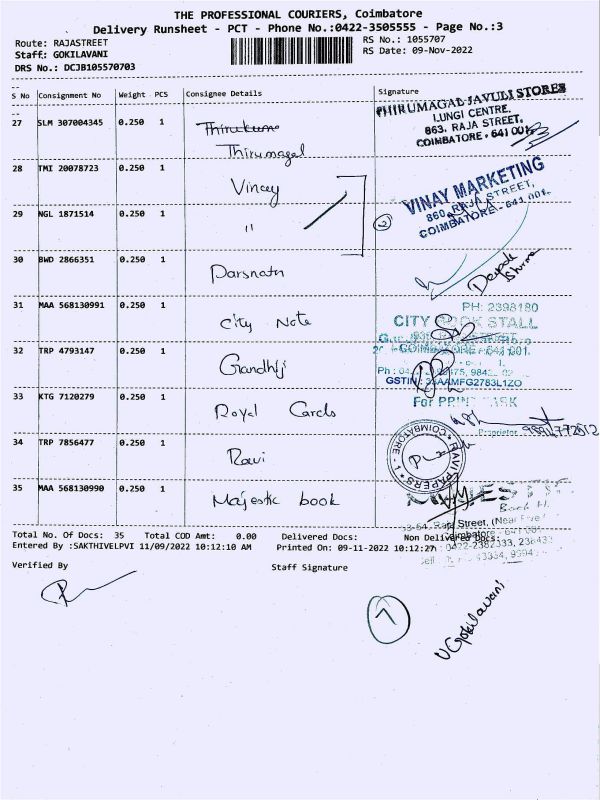 THE PROFESSIONAL COURIERS, Coimbatore
Delivery Runsheet - PCT - Phone No.:0422-3505555 - Page No.:3
Route: RAJASTREET
Staff: GOKILAVANI
DRS No.: DCJB105570703
RS No.: 1055707
RS Date: 09-Nov-2022
S No Consignment No Weight PCS Consignee Details Signature
27 SLM 307004345 0.250 1 Thirumagal
THIRUMAGAL JAVULI STORES
LUNGI CENTRE,
863, RAJA STREET,
COIMBATORE - 641 001.
28 TMI 20078723 0.250 1 Vincey
VINAY MARKETING
860, RAJA STREET,
COIMBATORE - 641 001.
29 NGL 1871514 0.250 1 "
2
30 BWD 2866351 0.250 1 Parsnath
Deepak
Sharma
31 MAA 568130991 0.250 1 City Note
PH: 2398180
CITY BOOK STALL
COIMBATORE - 641 001.
32 TRP 4793147 0.250 1 Gandhiji
33 KTG 7120279 0.250 1 Royal Cards
For PRINT
Proprietor
34 TRP 7856477 0.250 1 Ravi
RAVI PAPERS
COIMBATORE - 1
35 MAA 568130990 0.250 1 Majestic book
Raja Street, (Near Five
Coimbatore
Total No. Of Docs: 35 Total COD Amt: 0.00 Delivered Docs: Non Delivered Docs:
Entered By :SAKTHIVELPVI 11/09/2022 10:12:10 AM Printed On: 09-11-2022 10:12:27
Verified By Staff Signature
7
V Gokilavani